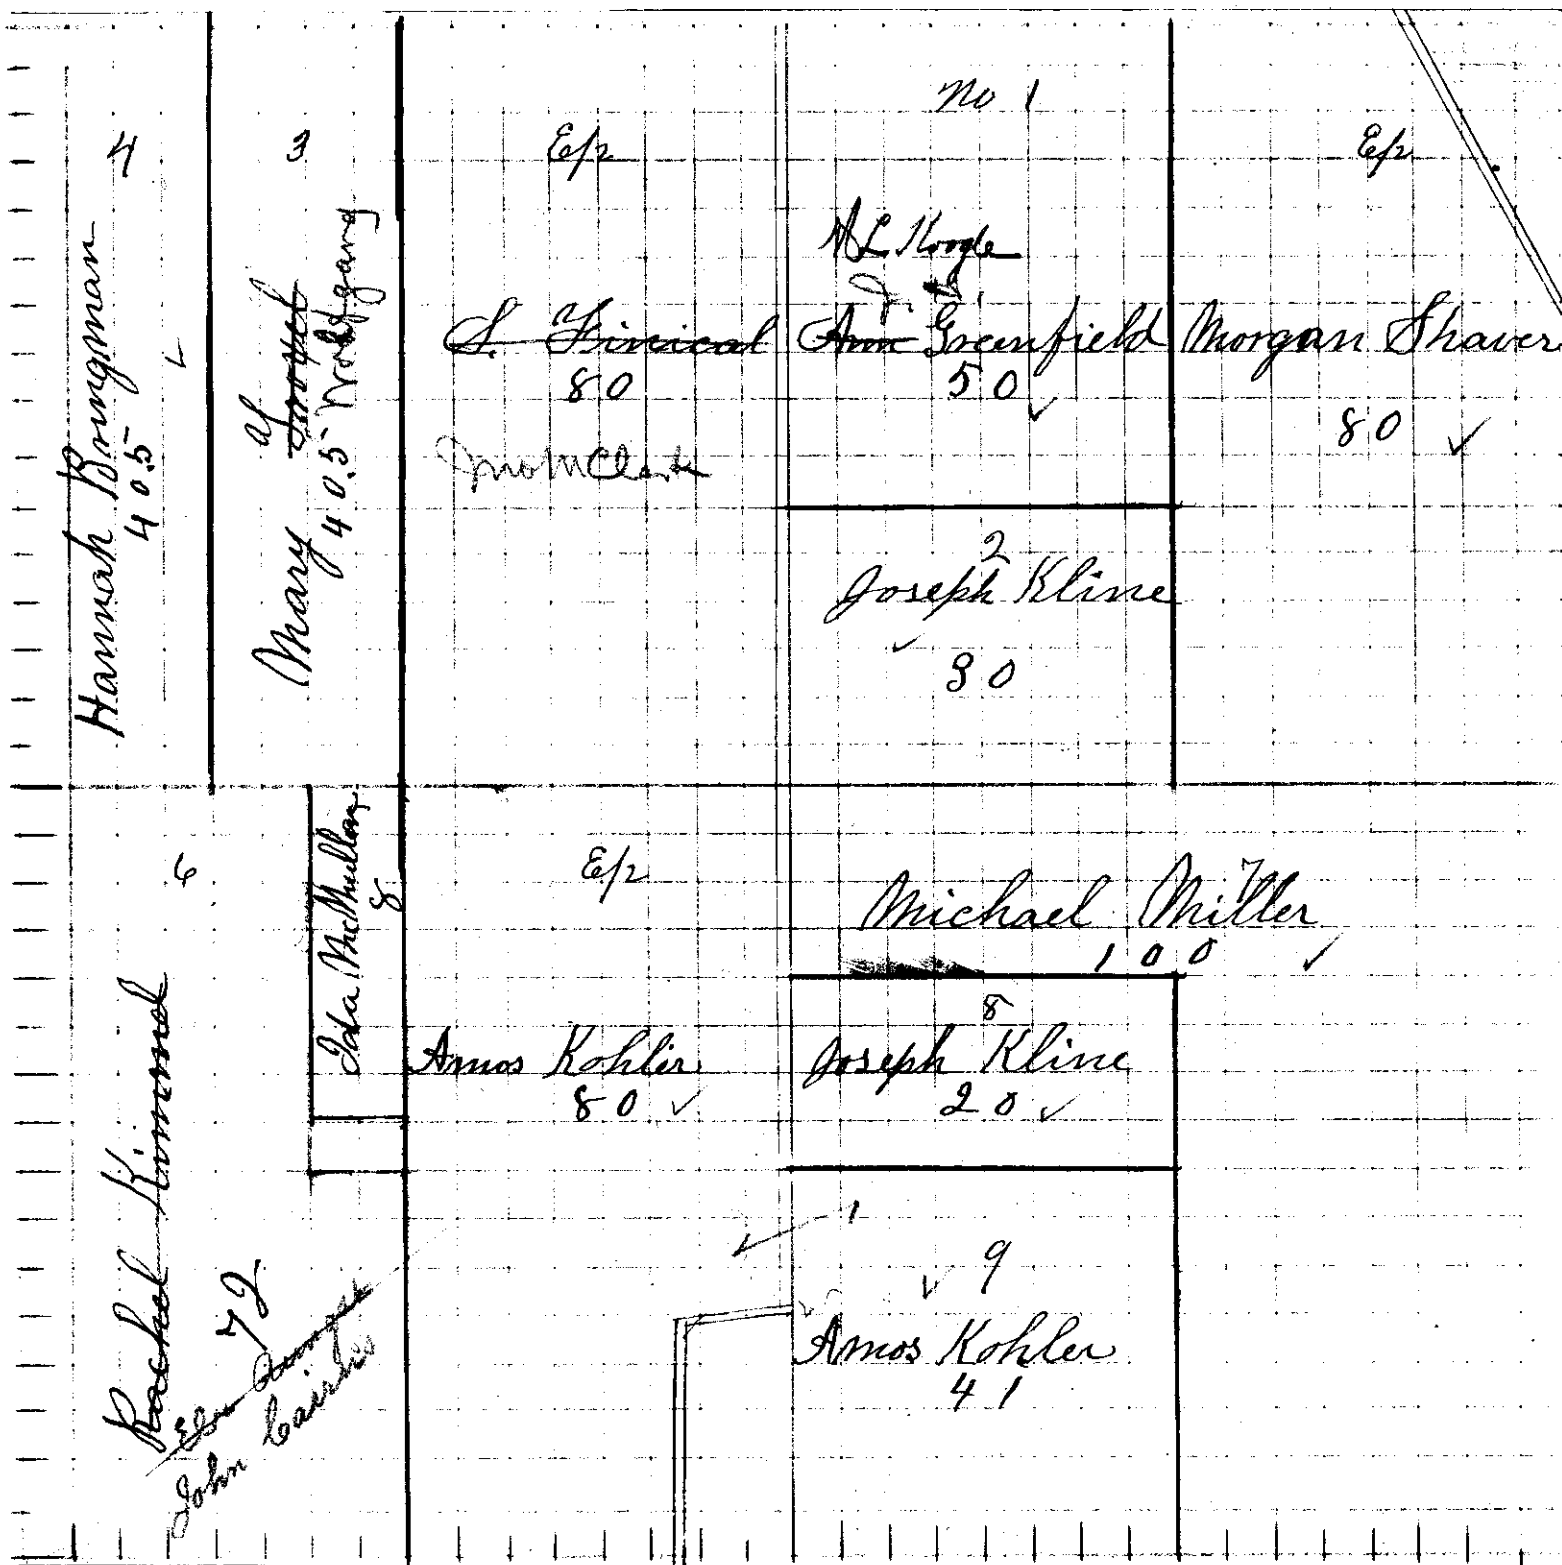 4
Hannah Bringman
40.5
3
Mary
40.5 Wolfgang
E/2
S. Finical
80
Jno M Clark
No 1
A L Koogle
Ann Greenfield
50
E/2
Morgan Shaver
80
2
Joseph Kline
30
6
Rachel Kimmel
72
John
Ida McMullen
8
E/2
Amos Kohler
80
7
Michael Miller
100
8
Joseph Kline
20
1
9
Amos Kohler
41